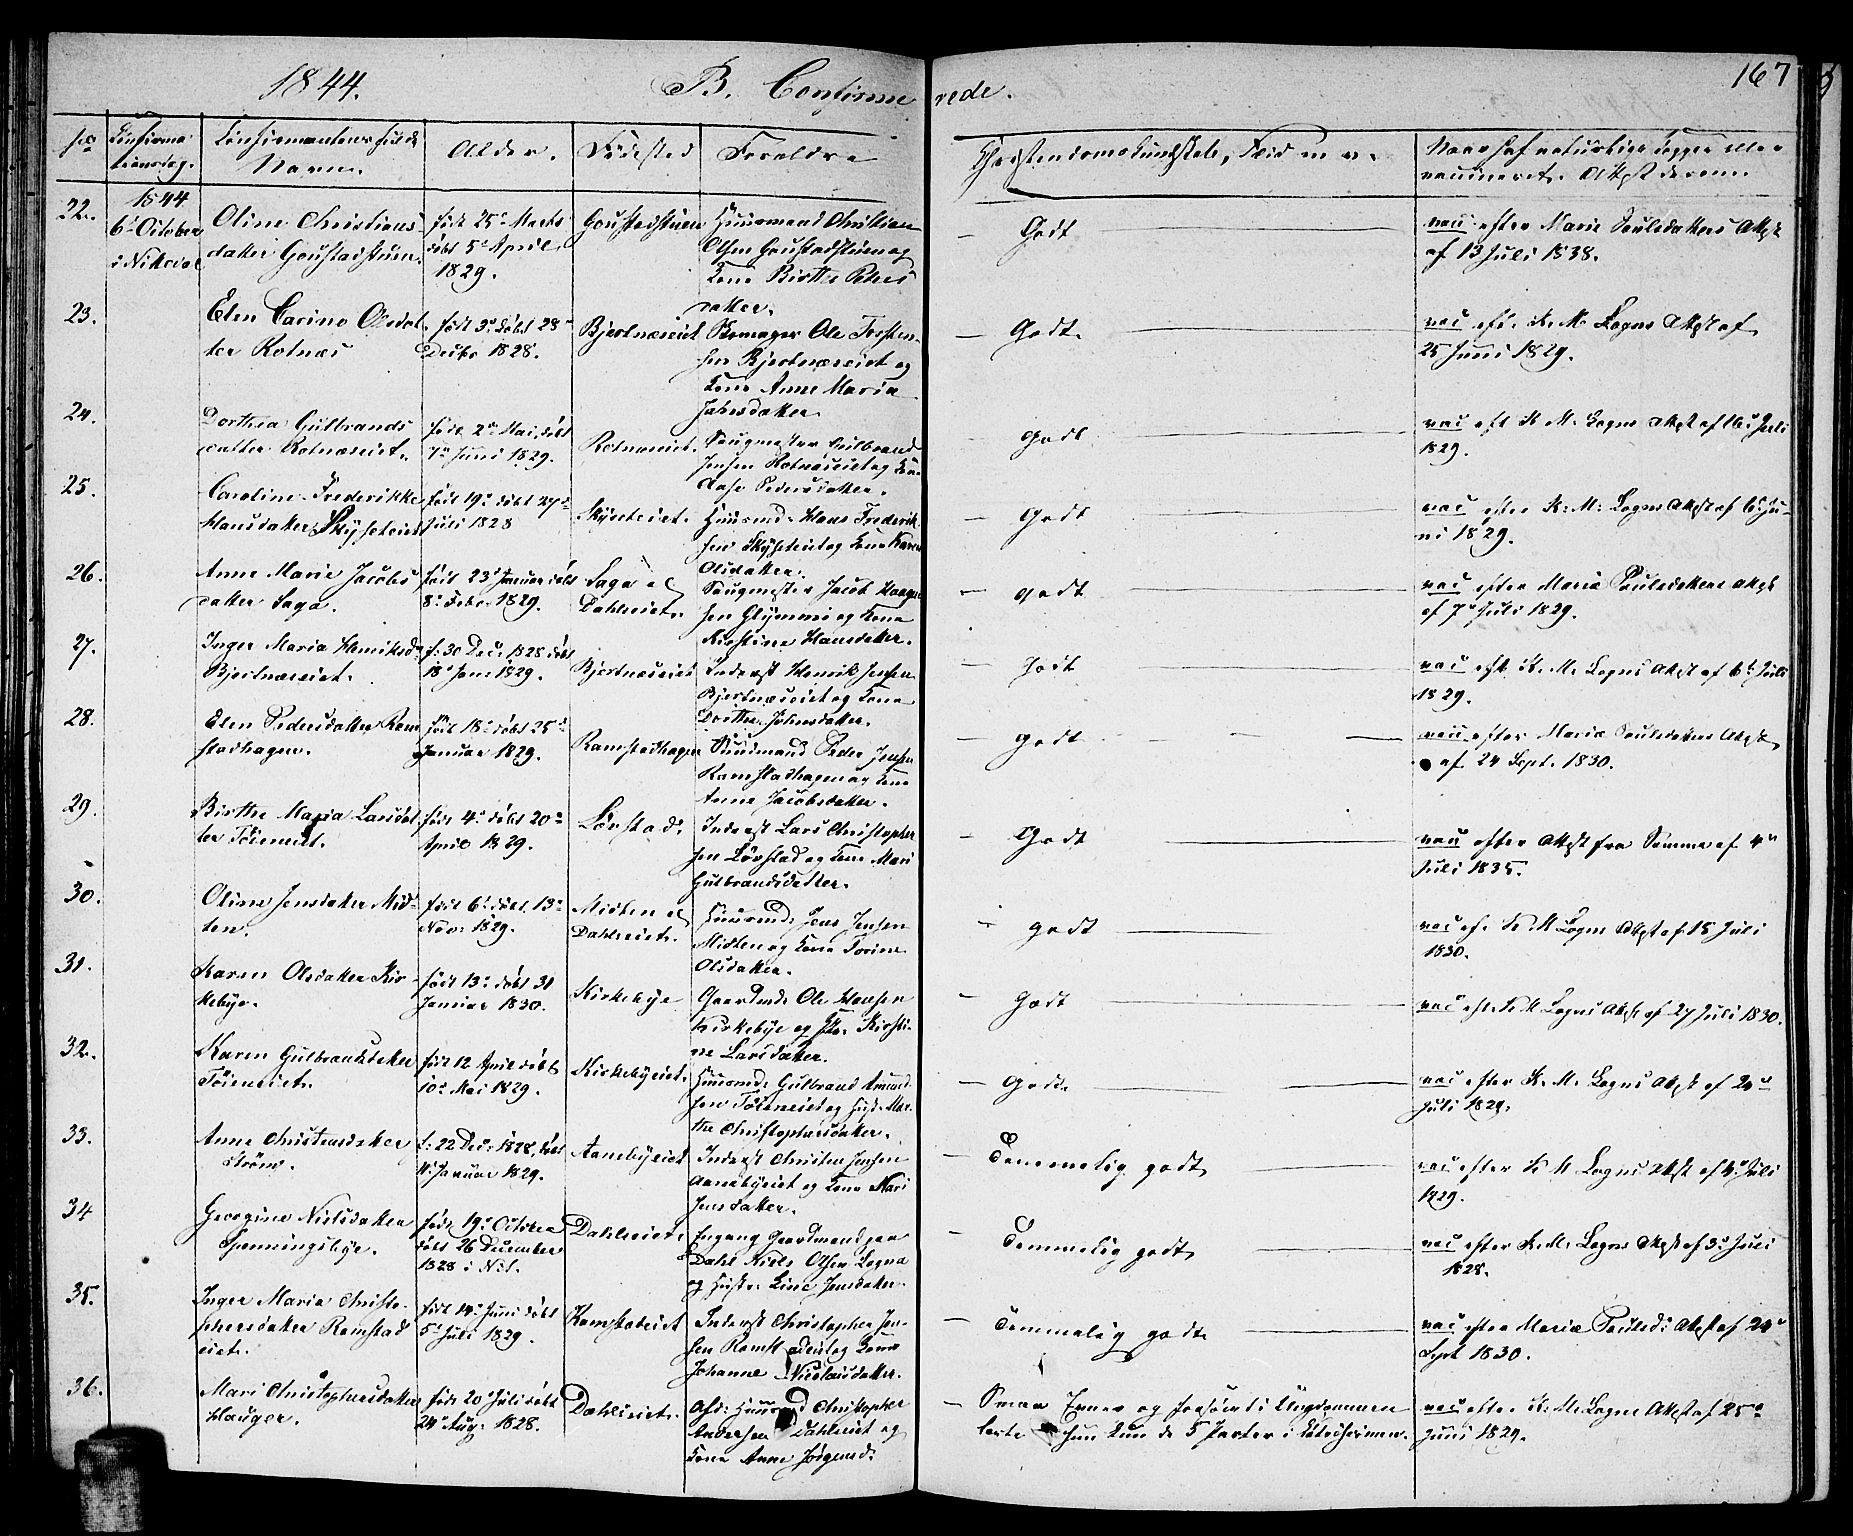 1844. B. Confirmerede. 167
No Confirmationsdag. Confirmantens fulde Navn. Alder. Fødested Forældre Christendomskundskab, Flid m. v. Naar haf naturlige Kopper eller vaccineret. Attest derom.
22. 1844 6te October i Nittedal
Oline Christians
datter Goustadstuen
født 25de Marts
døbt 5te April
1829.
Goustadstuen
Huusmand Christian
Olsen Goustadstuen og
Kone Birthe Peders
datter.
Godt
vacc efter Marie Poulsdatters Attest
af 13 Juli 1838.
23.
Elen Carine Olsdat
ter Rotnæs
født 3de døbt 28de
Decbr 1828.
Bjertnæseiet
Skomager Ole Torsten-
sen Bjertnæseiet og
Kone Anne Maria
Johnsdatter
Godt.
vac eft. K. M. Logns Attest af
25 Juni 1829.
24.
Dorthea Gulbrands
datter Rotnæseiet.
født 2den Mai, døbt
7de Juni 1829.
Rotnæseiet.
Saugmester Gulbrand
Jensen Rotnæseiet og Kone
Pedersdatter.
godt
vac eft K. M. Logns Attest af 16de Juli
1829.
25.
Caroline Frederikke
Hansdatter Skytseteiet
født 19de døbt 27de
Juli 1828
Skytseteiet.
Huusmd. Hans Frederik
sen Skytseteiet og Kone Karen
Olsdatter.
godt
vac efter K. M. Logns Attest af 6te Ju-
ni 1829.
26.
Anne Marie Jacobs
datter Saga.
født 23de Januar døbt
8de Febr. 1829.
Saga al
Dahleeiet.
Saugmester Jacob
sen Glymmi og Kone
Kirstine Hansdatter.
godt
vac efter Maria Poulsdatters Attest
af 7de Juli 1829.
27.
Inger Maria Henriksd.
Bjertnæseiet.
f. 30 Dec. 1828 døbt
18de Jan. 1829.
Bjertnæseiet
Inderst Henrik Jensen
Bjertnæseiet og Kone
Dorthe Johnsdatter.
godt
vac eft. K. M. Logns Attest af 6te Juli
1829.
28.
Elen Pedersdatter Ram
stadhagen.
født 18de døbt 25de
Januar 1829.
Ramstadhagen
Huusmand Peder Jensen
Ramstadhagen og Kone
Anne Jacobsdatter.
godt
vacc efter Maria Poulsdatters Attest
af 24 Sept. 1830.
29.
Birthe Maria Larsdat
ter Tøieneiet.
født 4de døbt 20de
April 1829.
Løvstad.
Inderst Lars Christopher
sen Løvstad og Kone Mari
Gulbrandsdatter.
Godt
vacc efter Attest fra Samme af 4de
Juli 1835.
30.
Oline Jensdatter Mid-
ten.
født 6te døbt 13de
Nov. 1829.
Midten al
Dahleeiet.
Huusmd. Jens Jensen
Midten og Kone Torine
Olsdatter.
godt
vac ef. K M Logns Attest af 15 Juli
1830.
31.
Karen Olsdatter Kir-
kebye.
født 13de døbt 31
Januar 1830.
Kirkebye
Gaardmd. Ole Hansen
Kirkebye og Kirsti-
ne Larsdatter.
Godt
vac eft. K M Logns Attest af 27 Juli 1830.
32.
Karen Gulbrandsdatter
Tøieneiet.
født 12 April døbt
10de Mai 1829.
Kirkebyeiet.
Huusmd. Gulbrand Amund-
sen Tøieneiet og Hust. Mar-
the Christophersdatter.
Godt.
vac efter K. M. Logns Attest af 2den
Juli 1829.
33.
Anne Christensdatter
Strøm.
f. 22 Dec. 1828, døbt
11te Januar 1829.
Aanebyeiet
Inderst Christen Jensen
Aanebyeiet og Kone Kari
Jensdatter.
Temmelig godt
vac efter K M Logns Attest af 4de Juli
1829.
34
Georgine Nielsdatter
Spenningsbye.
født 19de October
døbt 26 December
1828 i Nit.
Dahleeiet.
Gaardmand paa
Dahl Niels Olsen Logna
og Hustr. Line Jensdatter.
Temmelig godt
vac efter K. M. Logns Attest af 3de Juli
1828.
35.
Inger Maria Christo-
phersdatter Ramstad
eiet.
født 14de Juni døbt
5te Juli 1829.
Ramstadeiet
Inderst Christopher Jen-
sen Ramstadeiet og Kone
Johanne Nicolaisdatter.
Temmelig godt
vac efter Maria Poulsd. Attest af 24de
Sept 1830.
36.
Mari Christophersdatter
Hauger.
født 20de Juli døbt
24de Aug. 1828.
Dahleeiet.
Afd. Huusmd Christopher
Andersen Dahleeiet og
Kone Anne Jørgensd.
Smaa Evner og forsømt i Ungdommen
lærte hun kun de 5 Parter i Katechismen.
vac efter K. M. Logns Attest af 25de
Juni 1829.